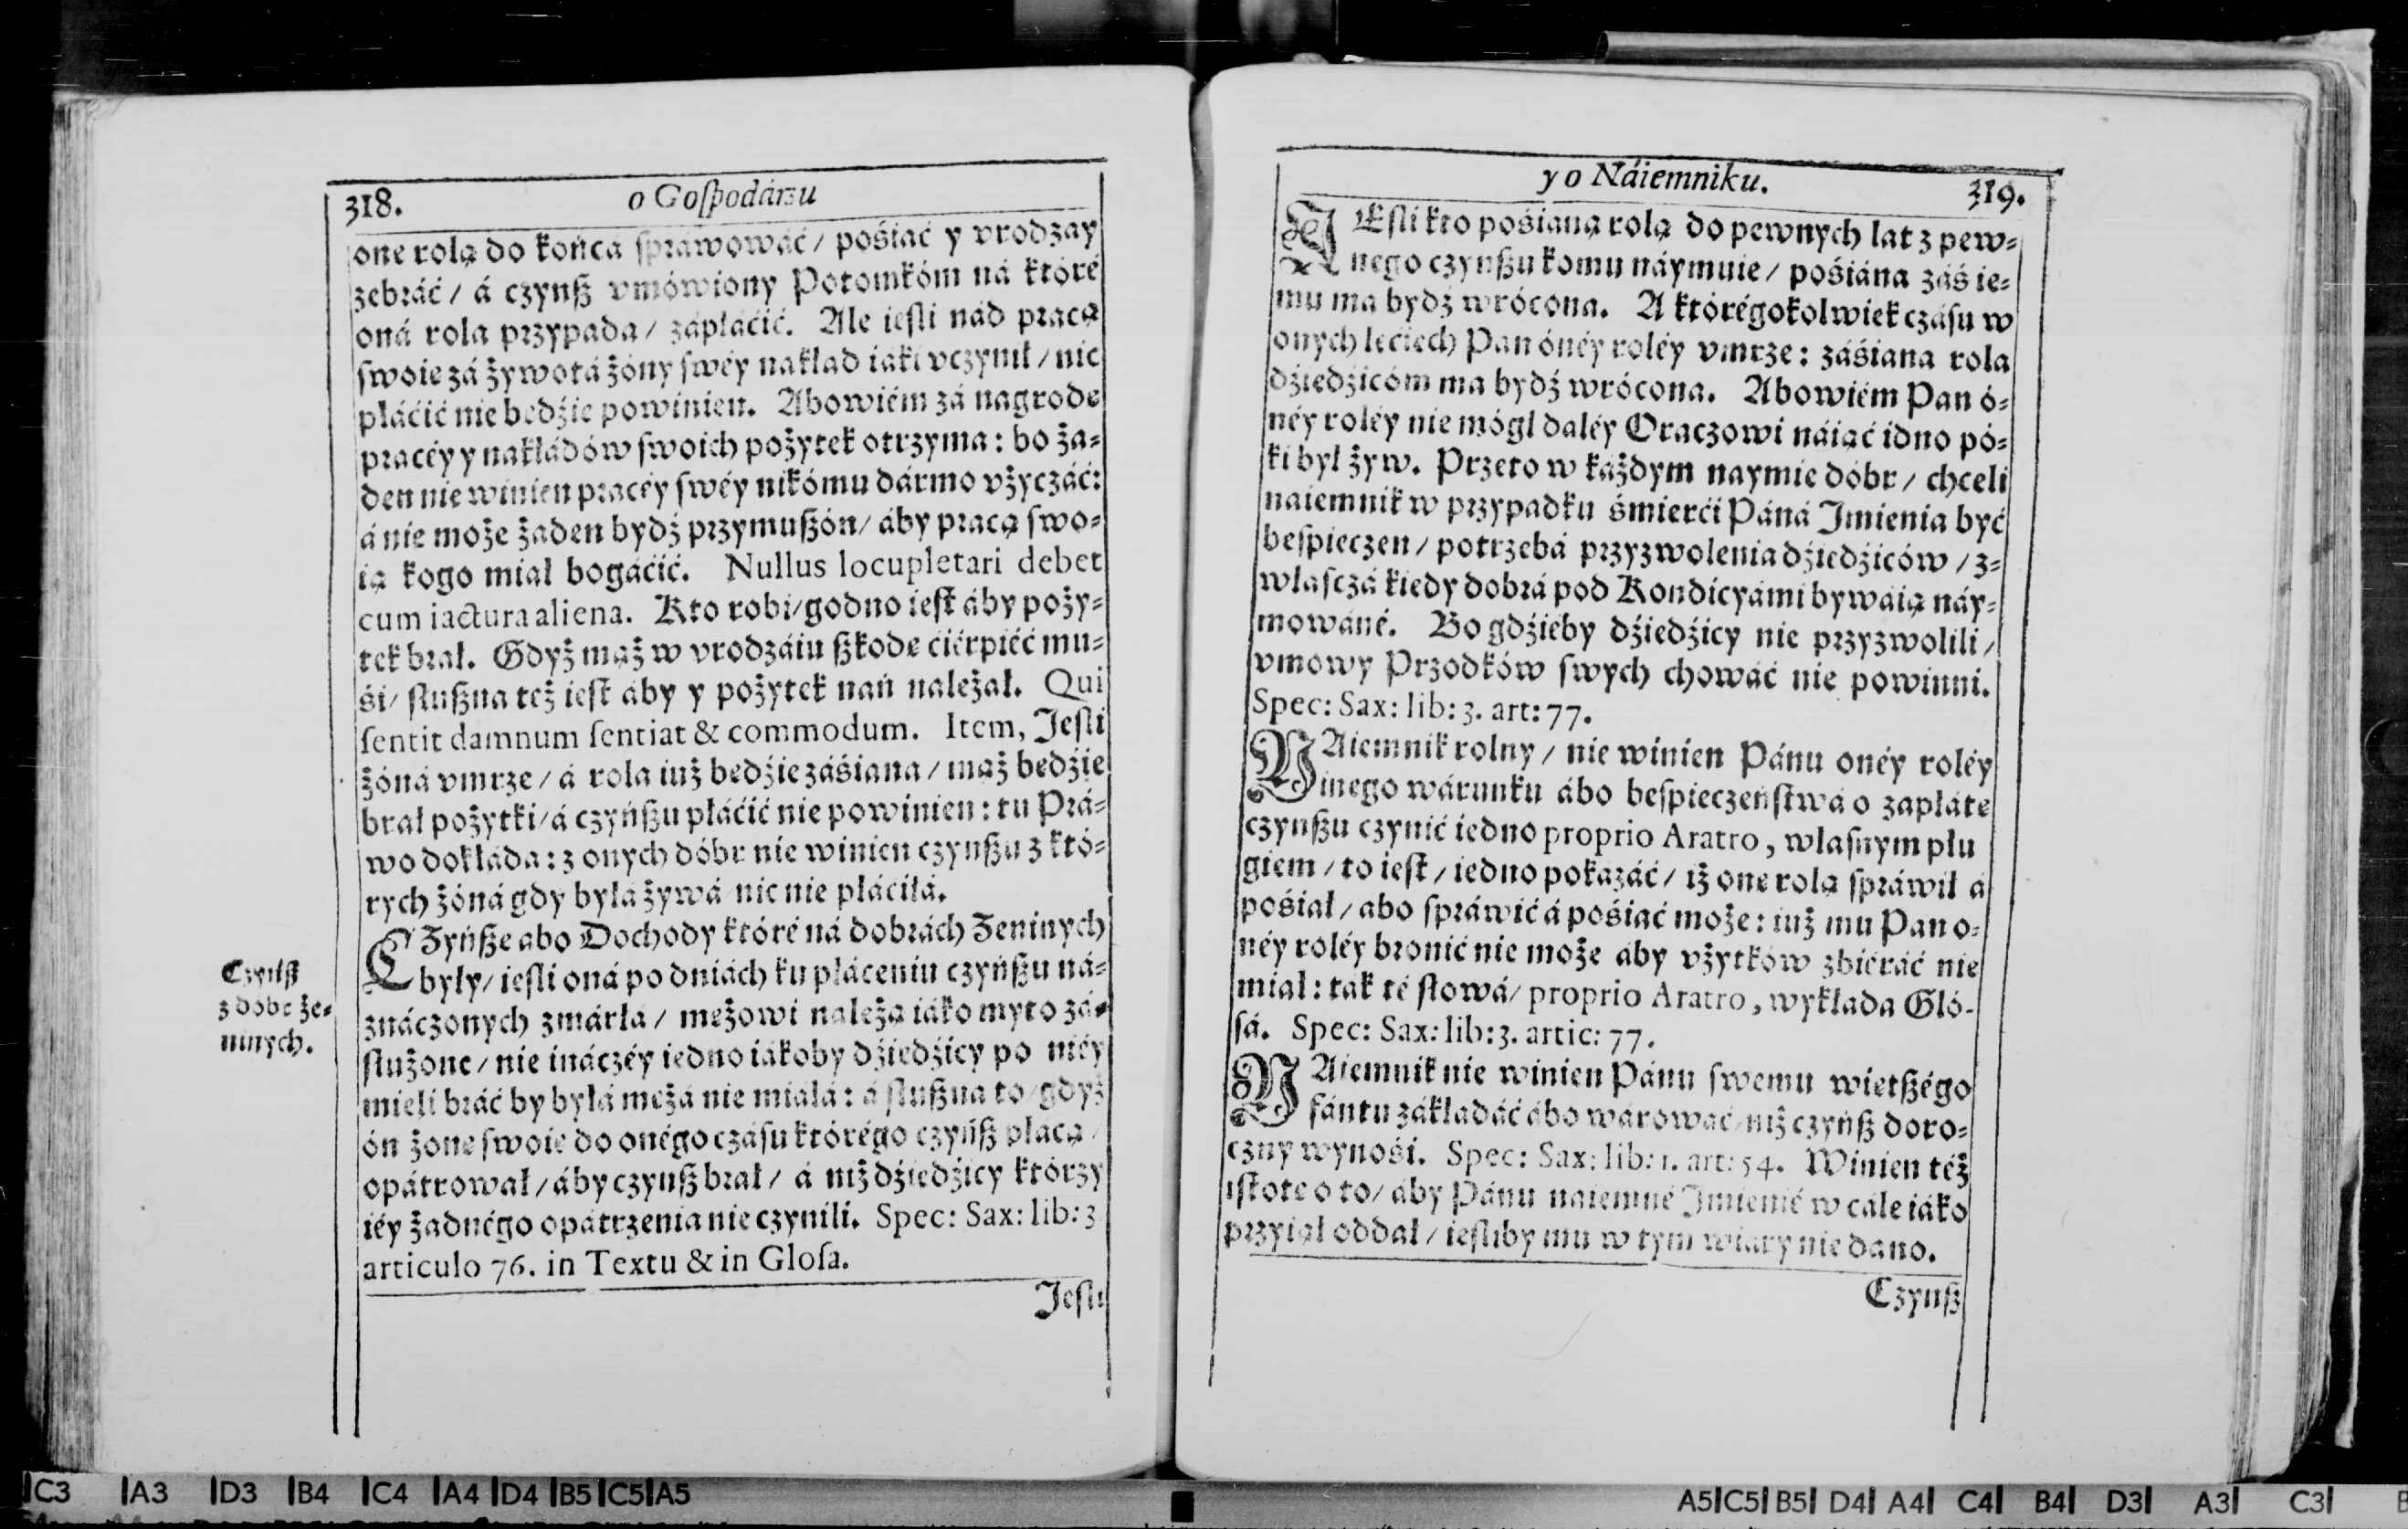 318. o Goſpodárzu
one rolą do końcá ſpráwowáć / pośiać y vrodzay
zebráć / á czynß vmówiony Potomkóm ná któré
oná rola przypada / zápłáćić. Ale ieſli nád pracą
ſwoie zá żywotá żóny ſwéy nakład iáki vczynił / nic
płáćić nie bedźie powinien. Abowiém zá nagrode
pracéy y nakłádów ſwoich pożytek otrzyma: bo ża-
den nie winien pracéy ſwéy nikómu dármo vżyczáć:
á nie może żaden bydź przymußón / áby pracą ſwo-
ią kogo miał bogáćić. Nullus locupletari debet
cum iactura aliena. Kto robi / godno ieſt áby poży-
tek brał. Gdyż mąż w vrodzáiu ßkode ćiérpiéć mu-
śi / ſlußna też ieſt áby y pożytek nań należał. Qui
ſentit damnum ſentiat & commodum. Item, Jeſli
żóná vmrze / á rola iuż bedźie záśiana / mąż bedźie
brał pożytki / á czyńßu płáćić nie powinien: tu Prá-
wo dokłáda: z onych dóbr nie winien czynßu z któ-
rych żóná gdy byłá żywá nic nie płáćiłá.
CZyńße abo Dochody któré ná dobrách Żeninych
były / ieſli oná po dniách ku płáceniu czyńßu ná-
Czyńß
z dobr że-
ninych.
znáczonych zmárłá / meżowi należą iáko myto zá-
ſlużone / nie ináczéy iedno iákoby dźiedźicy po niéy
mieli bráć by byłá mężá nie miałá: á ſlußna to / gdyż
ón żone ſwoie do onégo czáſu którégo czyńß płácą /
opátrował / áby czynß brał / á niż dźiedźicy którzy
iéy żadnégo opátrzenia nie czynili. Spec: Sax: lib: 3
articulo 76. in Textu & in Gloſa.
Jeſli
y o Náiemniku. 319.
JEſli kto pośianą rolą do pewnych lat z pew-
nego czynßu komu náymuie / pośiána záś ie-
mu ma bydź wrócona. A którégokolwiek czáſu w
onych lećiech Pan ónéy roléy vmrze: záśiana rola
dźiedźicóm ma bydź wrócona. Abowiém Pan ó-
néy roléy nie mógł daléy Oraczowi náiąć idno pó-
ki był żyw. Przeto w káżdym naymie dóbr / chceli
naiemnik w przypadku śmierći Páná Jmienia być
beſpieczen / potrzebá przyzwolenia dźiedźiców / z-
własczá kiedy dobrá pod Kondicyámi bywáią náy-
mowáné. Bo gdźieby dźiedźicy nie przyzwolili /
vmowy Przodków ſwych chowáć nie powinni.
Spec: Sax: lib: 3. art: 77.
NAiemnik rolny / nie winien Pánu onéy roléy
inego wárunku ábo beſpieczeńſtwá o zapłáte
czynßu czynić iedno proprio Aratro, własnym płu
giem / to ieſt / iedno pokazáć / iż one rolą ſpráwił á
pośiał / abo ſpráwić á pośiać może: iuż mu Pan o-
néy roléy bronić nie może áby vżytków zbiéráć nie
miał: tak té ſłowá / proprio Aratro, wykłada Gló-
ſá. Spec: Sax: lib: 3. artic: 77.
NAiemnik nie winien Pánu ſwemu wietßégo
fántu zákładáć ábo wárowáć / niż czyńß doro-
czny wynośi. Spec: Sax: lib: 1. art: 54. Winien téż
iſtote o to / áby Pánu naiemné Jmienié w cále iáko
przyiął oddał / ieſliby mu w tym wiáry nie dano.
Czynß
C3 A3 D3 B4 C4 A4 D4 B5 C5 A5
A5 C5 B5 D4 A4 C4 B4 D3 A3 C3